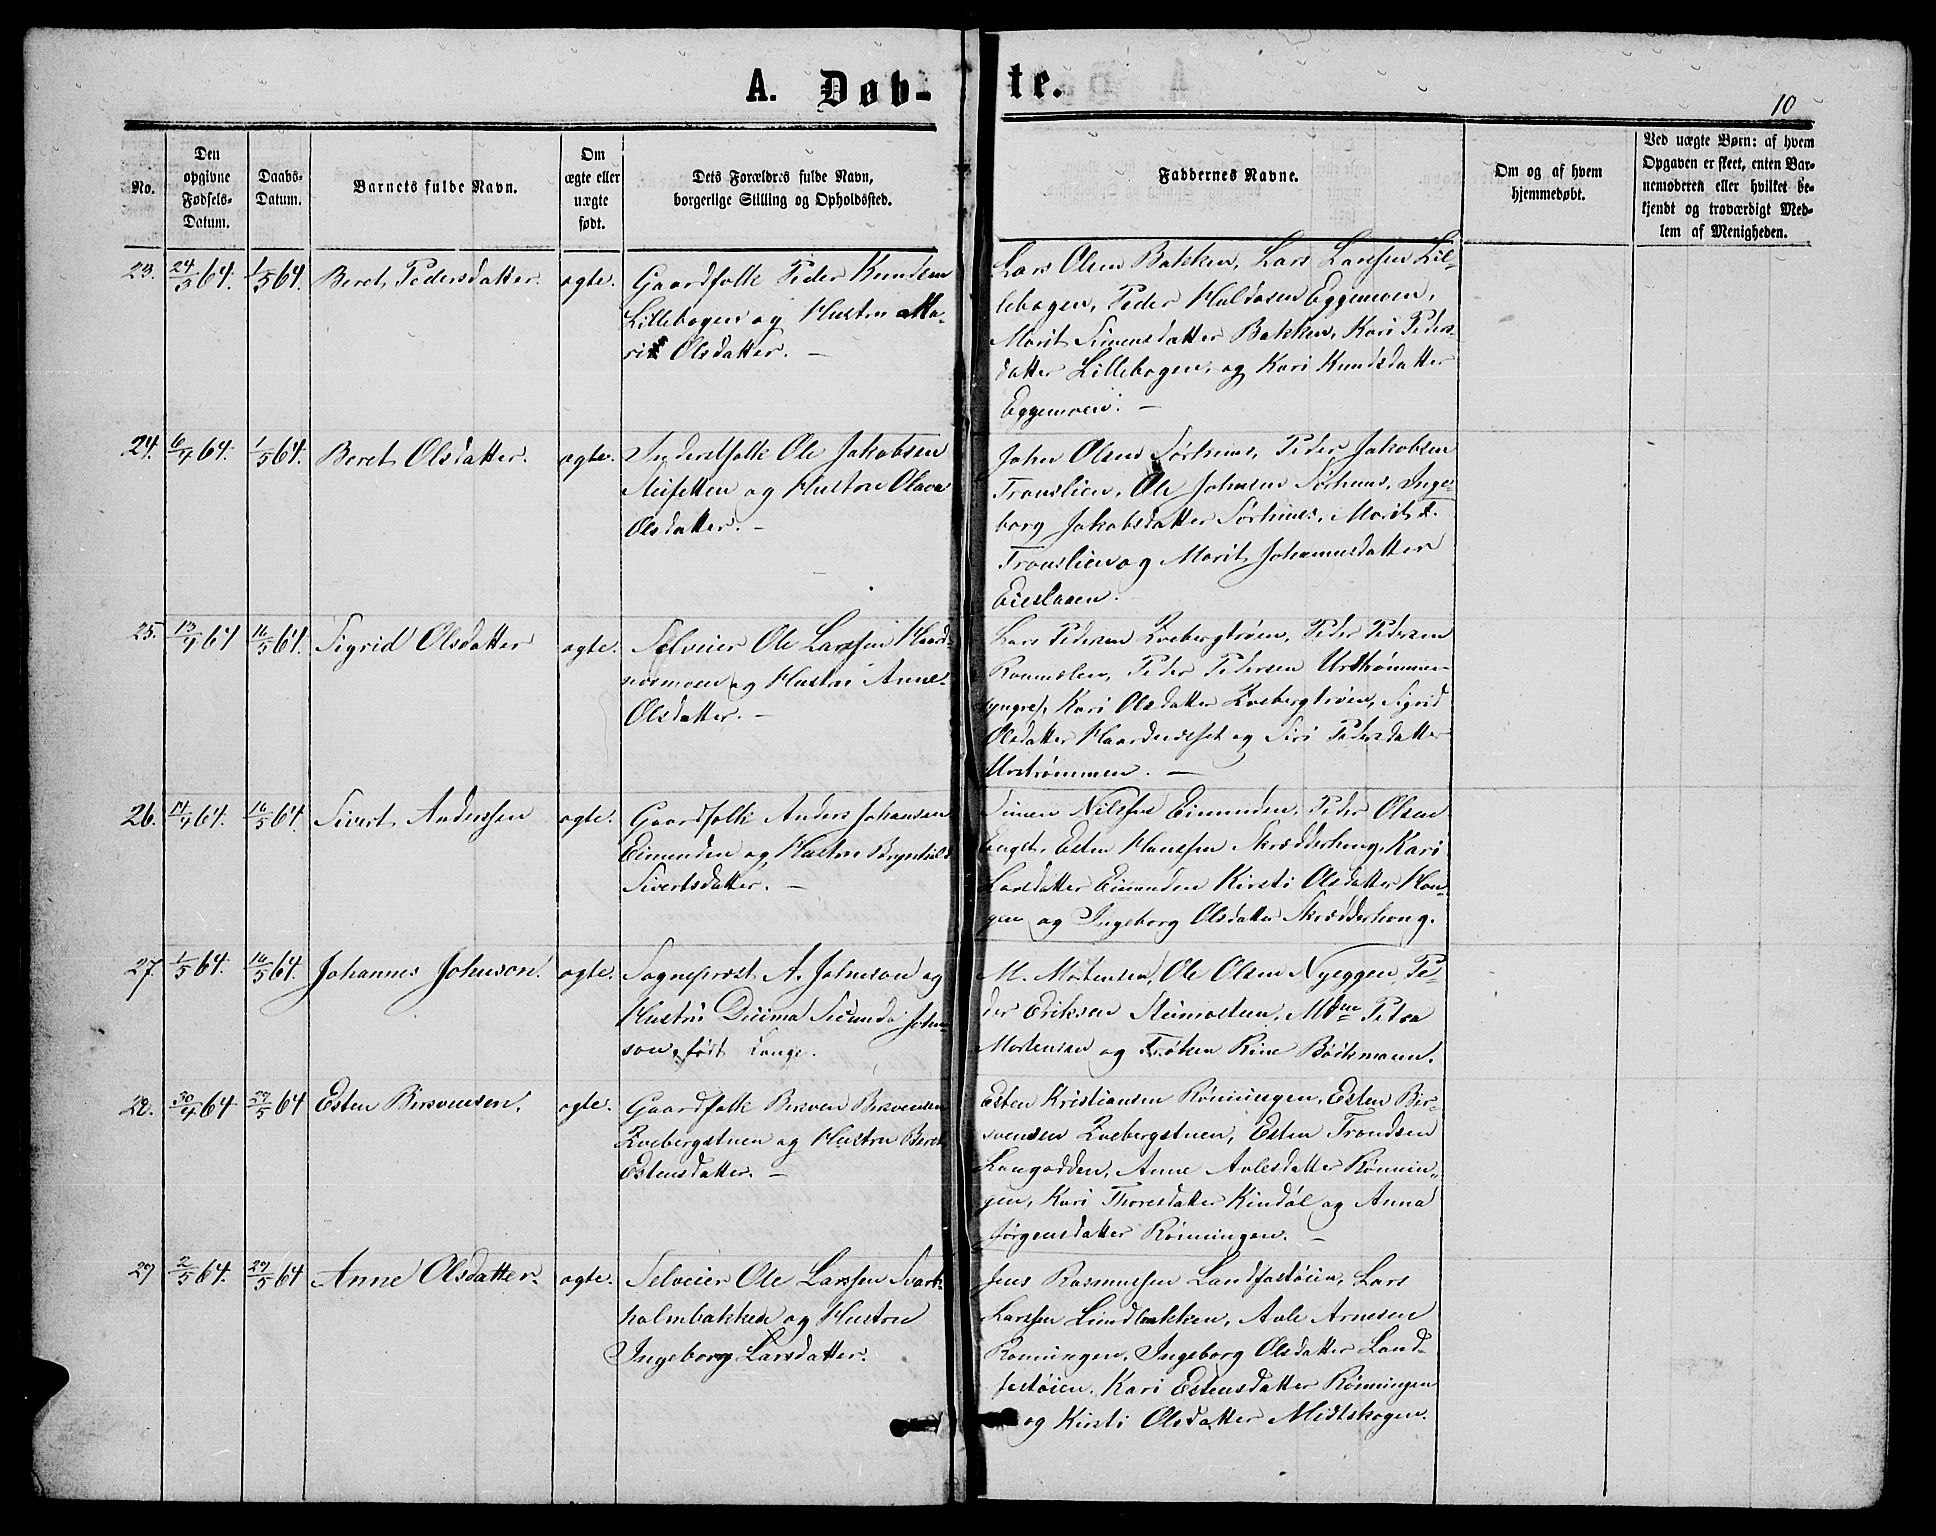 A. Døb-
te.
10
No.
Den
opgivne
Fødsels-
Datum.
Daabs-
Datum.
Barnets fulde Navn.
Om
ægte eller
uægte
født.
Dets Forældres fulde Navn,
borgerlige Stilling og Opholdssted.
Faddernes Navne.
Om og af hvem
hjemmedøbt.
Ved uægte Børn: af hvem
Opgaven er skeet, enten Bar-
nemoderen eller hvilket be-
kjendt og troværdigt Med-
lem af Menigheden.
23. 24/3 64. 1/5 64. Beret Pedersdatter. ægte.
Gaardfolk Peder Knudsen
Lillebogen og Hustru Ma-
rit Olsdatter. —
Lars Olsen Bakken, Lars Larssen Lil-
lebogen, Peder Haldosen Eggemoen,
Marit Simensdatter Bakken, Kari Peders-
datter Lillebogen, og Kari Knudsdatter
Eggemoen. —
24. 6/4 64. 1/5 64. Beret Olsdatter. ægte.
Inderstfolk Ole Jakobsen
og Hustru Olava
Olsdatter. —
John Olsen Sørhuus, Peder Jakobsen
Tronslien, Ole Johnsen Sørhuus, Inge-
borg Jakobsdatter Sørhuus, Marit
Tronslien og Marit Johannesdatter
25. 13/4 64 16/5 64. Sigrid Olsdatter ægte.
Selveier Ole Larssen Haard-
næsmoen og Hustru Anne
Olsdatter. —
Lars Pedersen Kvebergtrøen, Peder Pedersen
Peder Pedersen Urstrømmen
yngre, Kari Olsdatter Kvebergtrøen, Sigrid
Olsdatter Haardnæsset og Siri Pedersdatter
Urstrømmen. —
26. 14/4 64. 16/5 64. Sivert Anderssen ægte.
Gaardfolk Anders Johansen
Eimunden og Hustru Brynhild
Sivertsdatter. —
Simen Nilssen Eimunden, Peder Olsen
Enget, Esten Hanssen Skrædderhaug, Kari
Larsdatter Eimunden Kirsti Olsdatter Hau-
gen og Ingeborg Olsdatter Skrædderhaug.
27. 1/5 64. 16/5 64. Johannes Johnson. ægte.
Sogneprest A. Johnson og
Hustru Decima Secunda John-
son, født Lange.
M. Mortensen, Ole Olsen Nyeggen, Pe-
der Eriksen Steimosteen, Mdme Petra
Mortensen og Frøken Rine Böckmann.
28. 30/4 64 29/5 64 Esten Bersvensen. ægte.
Gaardfolk Bersven Bersvensen
Kvebergstuen og Hustru Beret
Estensdatter. —
Esten Kristiansen Rønningen, Esten Ber-
svensen Kvebergstuen, Esten Trondsen
Langodden, Anne Avlesdatter Rønnin-
gen, Kari Thoresdatter Kindøl og Anna
Jørgensdatter Rønningen. —
29 2/5 64. 29/5 64 Anne Olsdatter. ægte.
Selveier Ole Larssen Svart-
holmbakken og Hustru
Ingeborg Larsdatter.
Jens Rasmussen Landfastøien, Lars
Larssen Lundbakken, Avle Arnesen
Rønningen, Ingeborg Olsdatter Land-
fastøien, Kari Estensdatter Rønningen
og Kirsti Olsdatter Midtskogen.